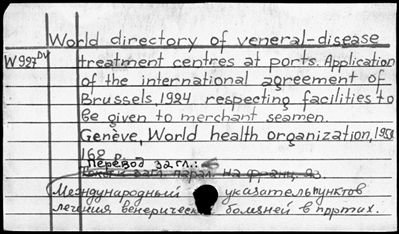 World directory of veneral-disease
W997DV treatment centres at ports. Application
of the international agreement of
Brussels, 1924 respecting facilities to
be given to merchant seamen.
Genève, World health organization,
168
Перевод загл.:
загл. парал. на франц. яз.
Международный указатель пунктов
лечения венерических болезней в портах.